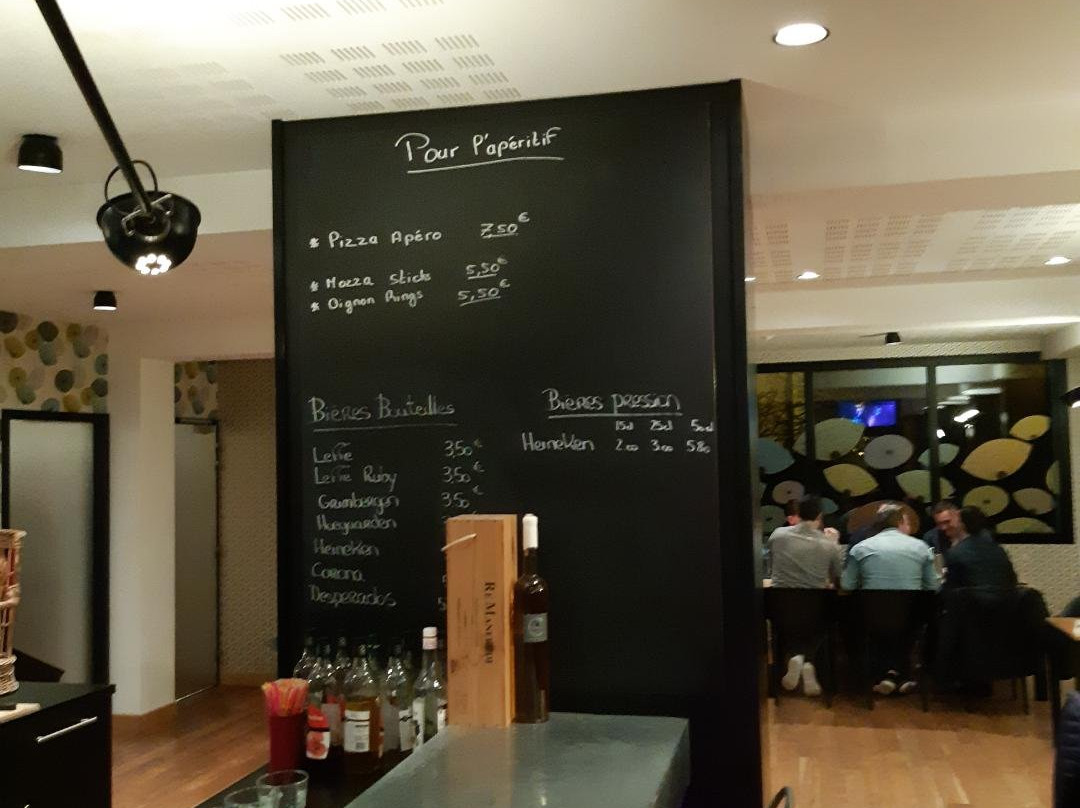 Pour l'apéritif
* Pizza Apéro 7,50€
* Mozza Sticks 5,50€
* Oignon Rings 5,50€
Bières Bouteilles
Leffe 3,50€
Leffe Ruby 3,50€
Grimbergen 3,50€
Hoegaarden
Heineken
Corona
Desperados 5
Bières pression
15cl 25cl 50cl
Heineken 2.00 3.00 5.80